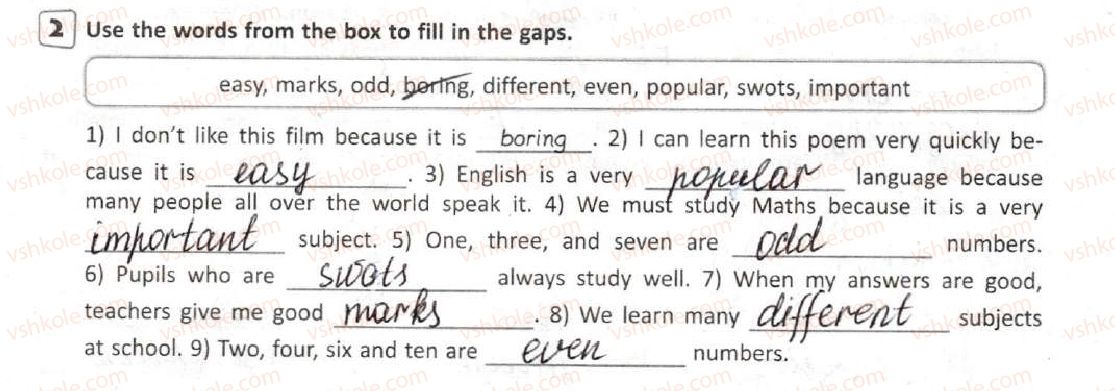 2 Use the words from the box to fill in the gaps.
easy, marks, odd, boring, different, even, popular, swots, important
1) I don't like this film because it is boring. 2) I can learn this poem very quickly be-
cause it is easy. 3) English is a very popular language because
many people all over the world speak it. 4) We must study Maths because it is a very
important subject. 5) One, three, and seven are odd numbers.
6) Pupils who are swots always study well. 7) When my answers are good,
teachers give me good marks. 8) We learn many different subjects
at school. 9) Two, four, six and ten are even numbers.
vshkole.com